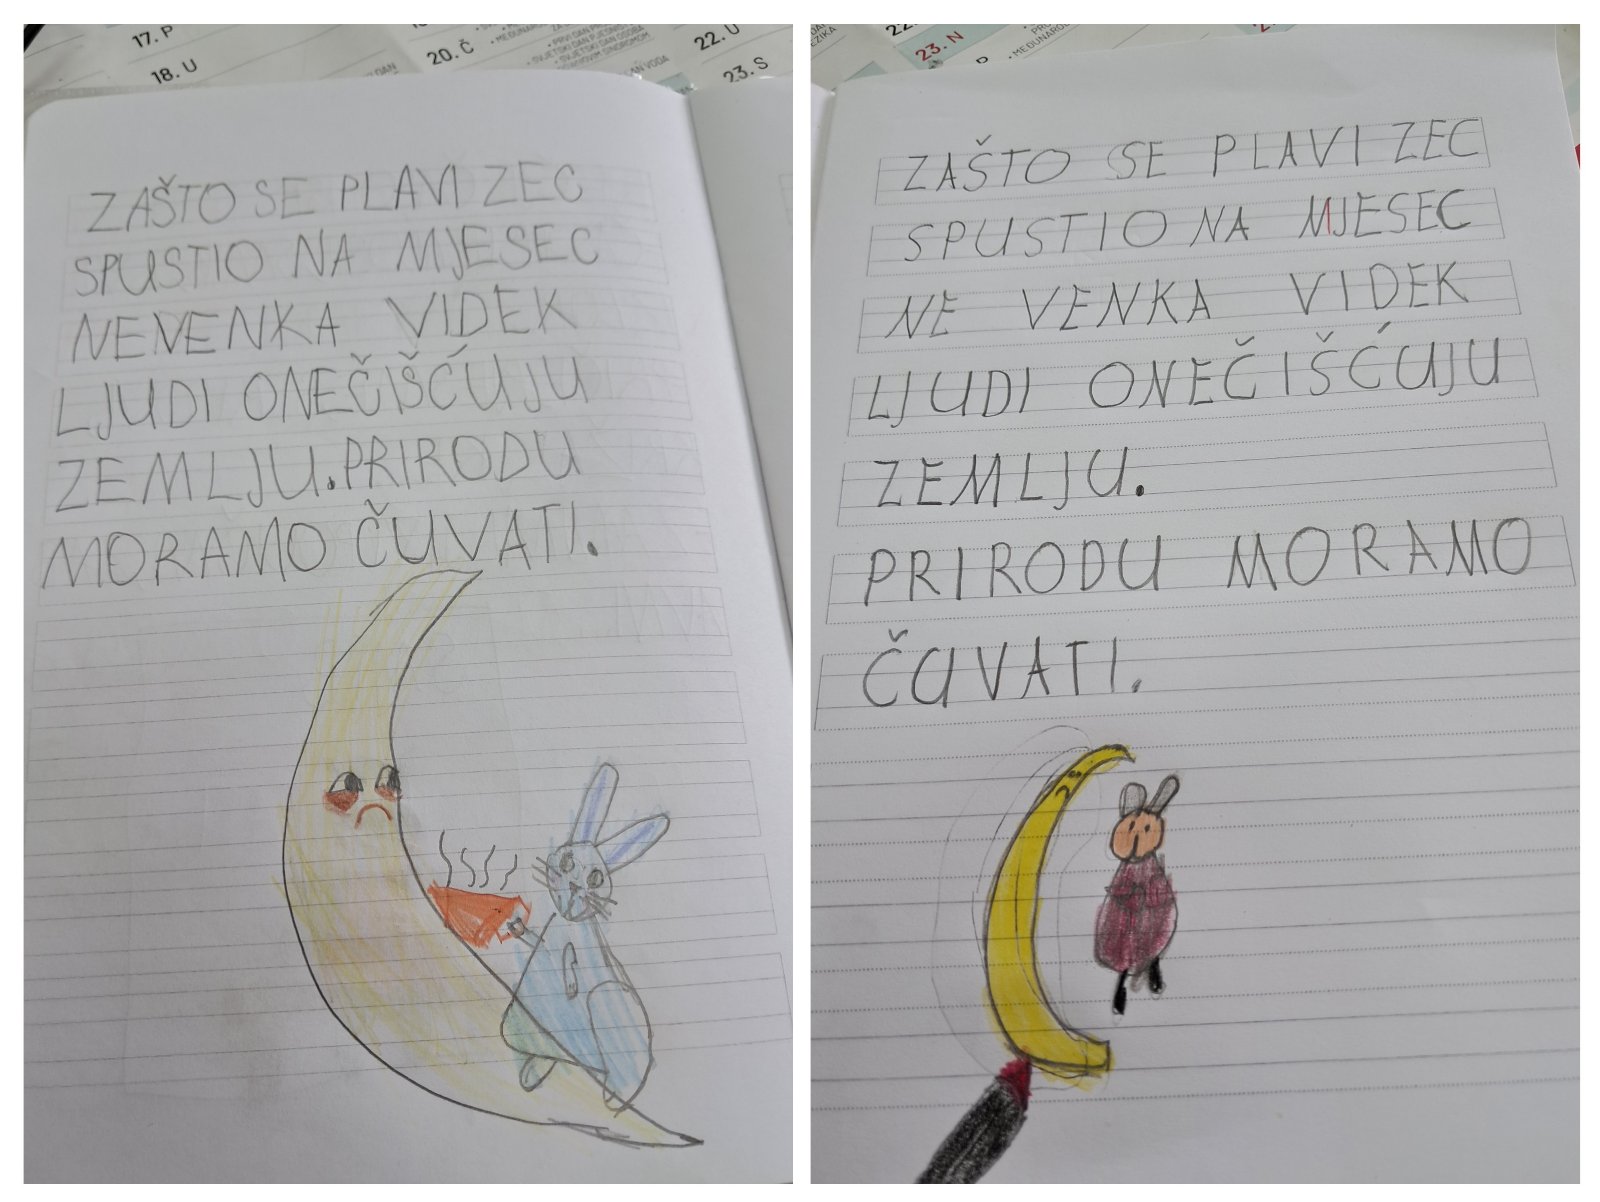 17. P
18. U
20. Č
22. U
23. S
ZAŠTO SE PLAVI ZEC
SPUSTIO NA MJESEC
NEVENKA VIDEK
LJUDI ONEČIŠĆUJU
ZEMLJU. PRIRODU
MORAMO ČUVATI.
23. N
ZAŠTO SE PLAVI ZEC
SPUSTIO NA MJESEC
NE VENKA VIDEK
LJUDI ONEČIŠĆUJU
ZEMLJU.
PRIRODU MORAMO
ČUVATI.